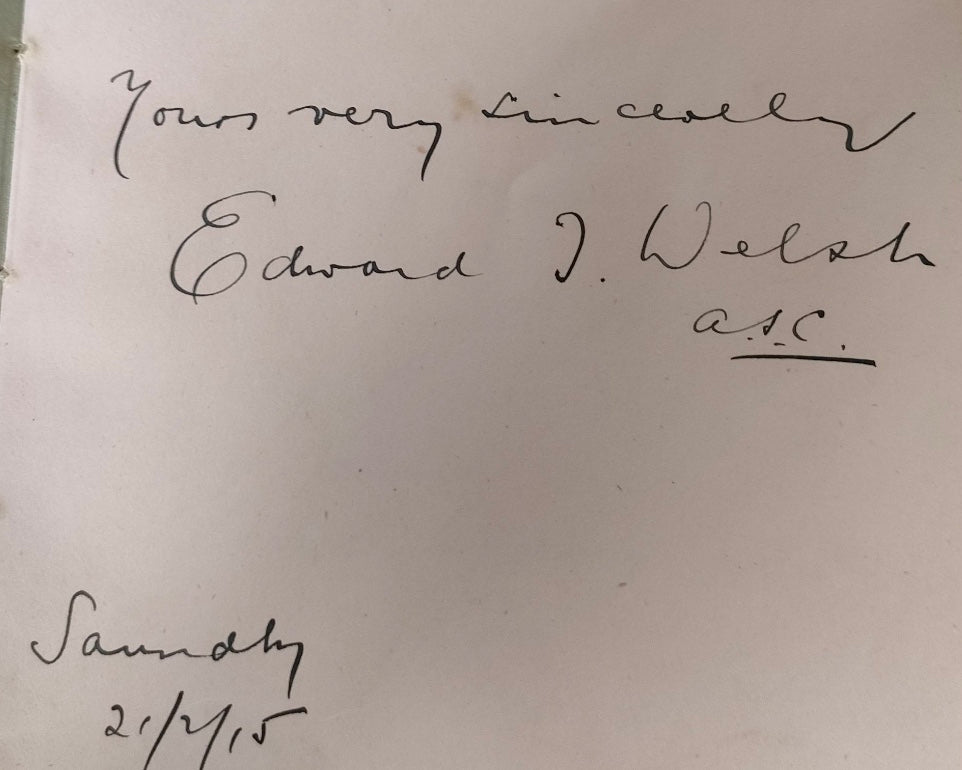 Yours very sincerely
Edward J. Welsh
A.S.C.
Saundby
21/2/15